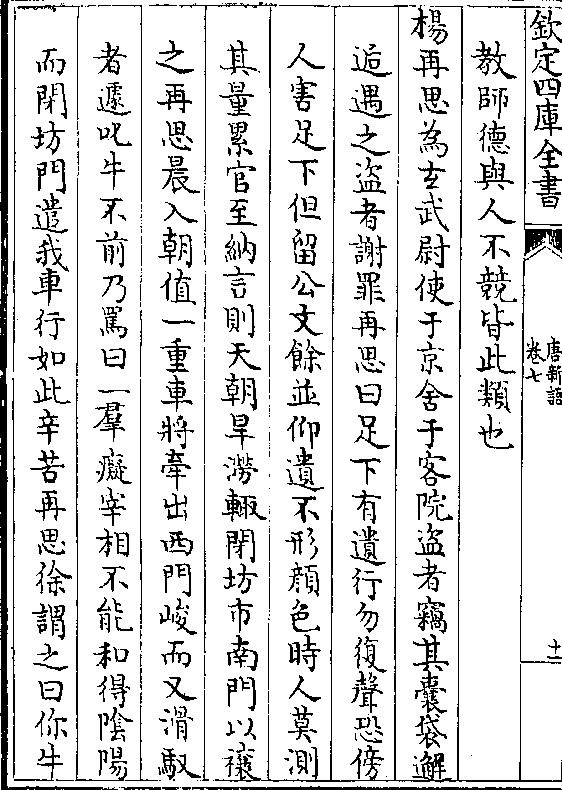 欽定四庫全書
唐新語
卷七
十一
教師德與人不競皆此類也
楊再思為玄武尉使于京舍于客院盜者竊其囊袋邂
逅遇之盜者謝罪再思曰足下有遺行勿復聲恐傍
人害足下但留公文餘並仰遺不形顔色時人莫測
其量累官至納言則天朝旱澇輙閉坊市南門以禳
之再思晨入朝值一重車將牽出西門峻而又滑馭
者遽叱牛不前乃罵曰一羣癡宰相不能和得陰陽
而閉坊門遣我車行如此辛苦再思徐謂之曰你牛